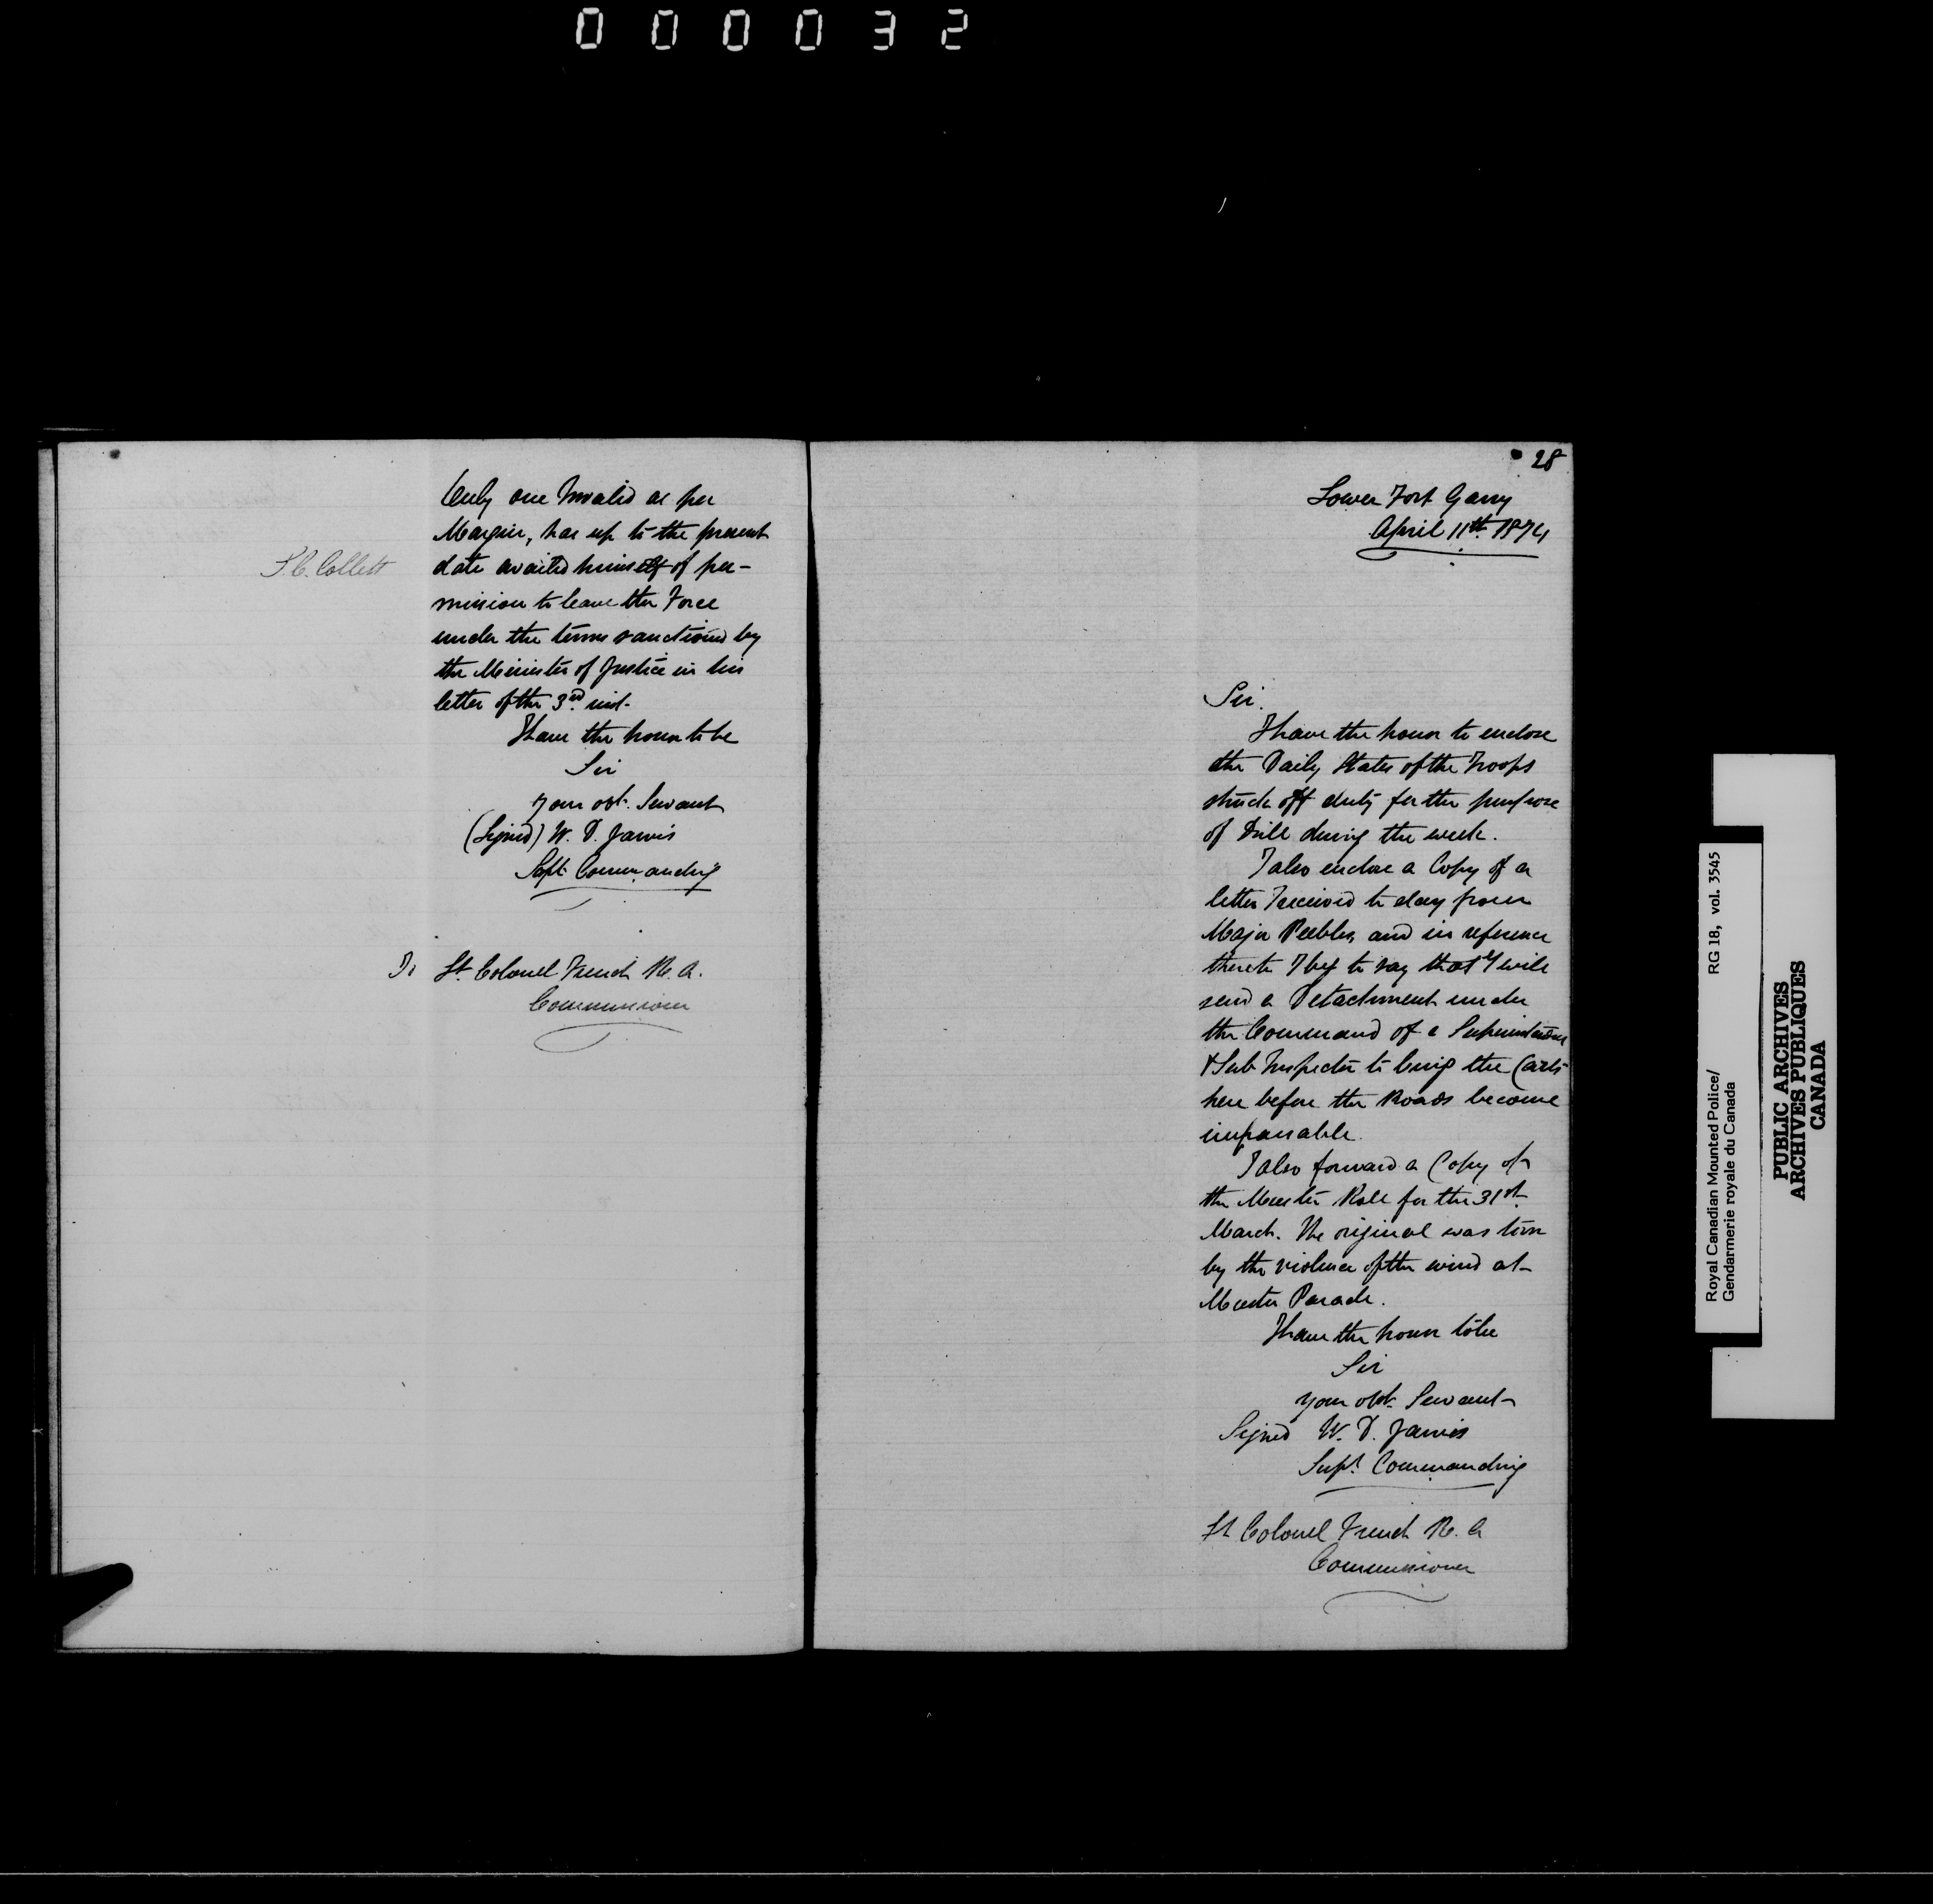 000032
Only one Invalid as per
Margin, has up to the present
S.C. Collett
date availed himself of per-
mission to leave the Force
under the terms sanctioned by
the Minister of Justice in his
letter of the 3rd inst.
I have the honor to be
Sir
your obt. Servant
(Signed) W. D. Jarvis
Supt Commanding
To Lt Colonel French R. A.
Commissioner
28
Lower Fort Garry
April 11th 1874
Sir.
I have the honor to enclose
the Daily States of the Troops
struck off duty for the purpose
of Drill during the week.
I also enclose a Copy of a
letter I received to day from
Major Peebles, and in reference
thereto I beg to say that I will
send a Detachment under
the Command of a Superintendent
& Sub Inspector to bring the Carts
here before the Roads become
impassable.
I also forward a Copy of
the Muster Roll for the 31st
March. The original was torn
by the violence of the wind at
Muster Parade.
I have the honor to be
Sir
your obt. Servant
Signed W. D. Jarvis
Supt Commanding
Lt Colonel French R. A
Commissioner
Royal Canadian Mounted Police/ RG 18, vol. 3545
Gendarmerie royale du Canada
PUBLIC ARCHIVES
ARCHIVES PUBLIQUES
CANADA